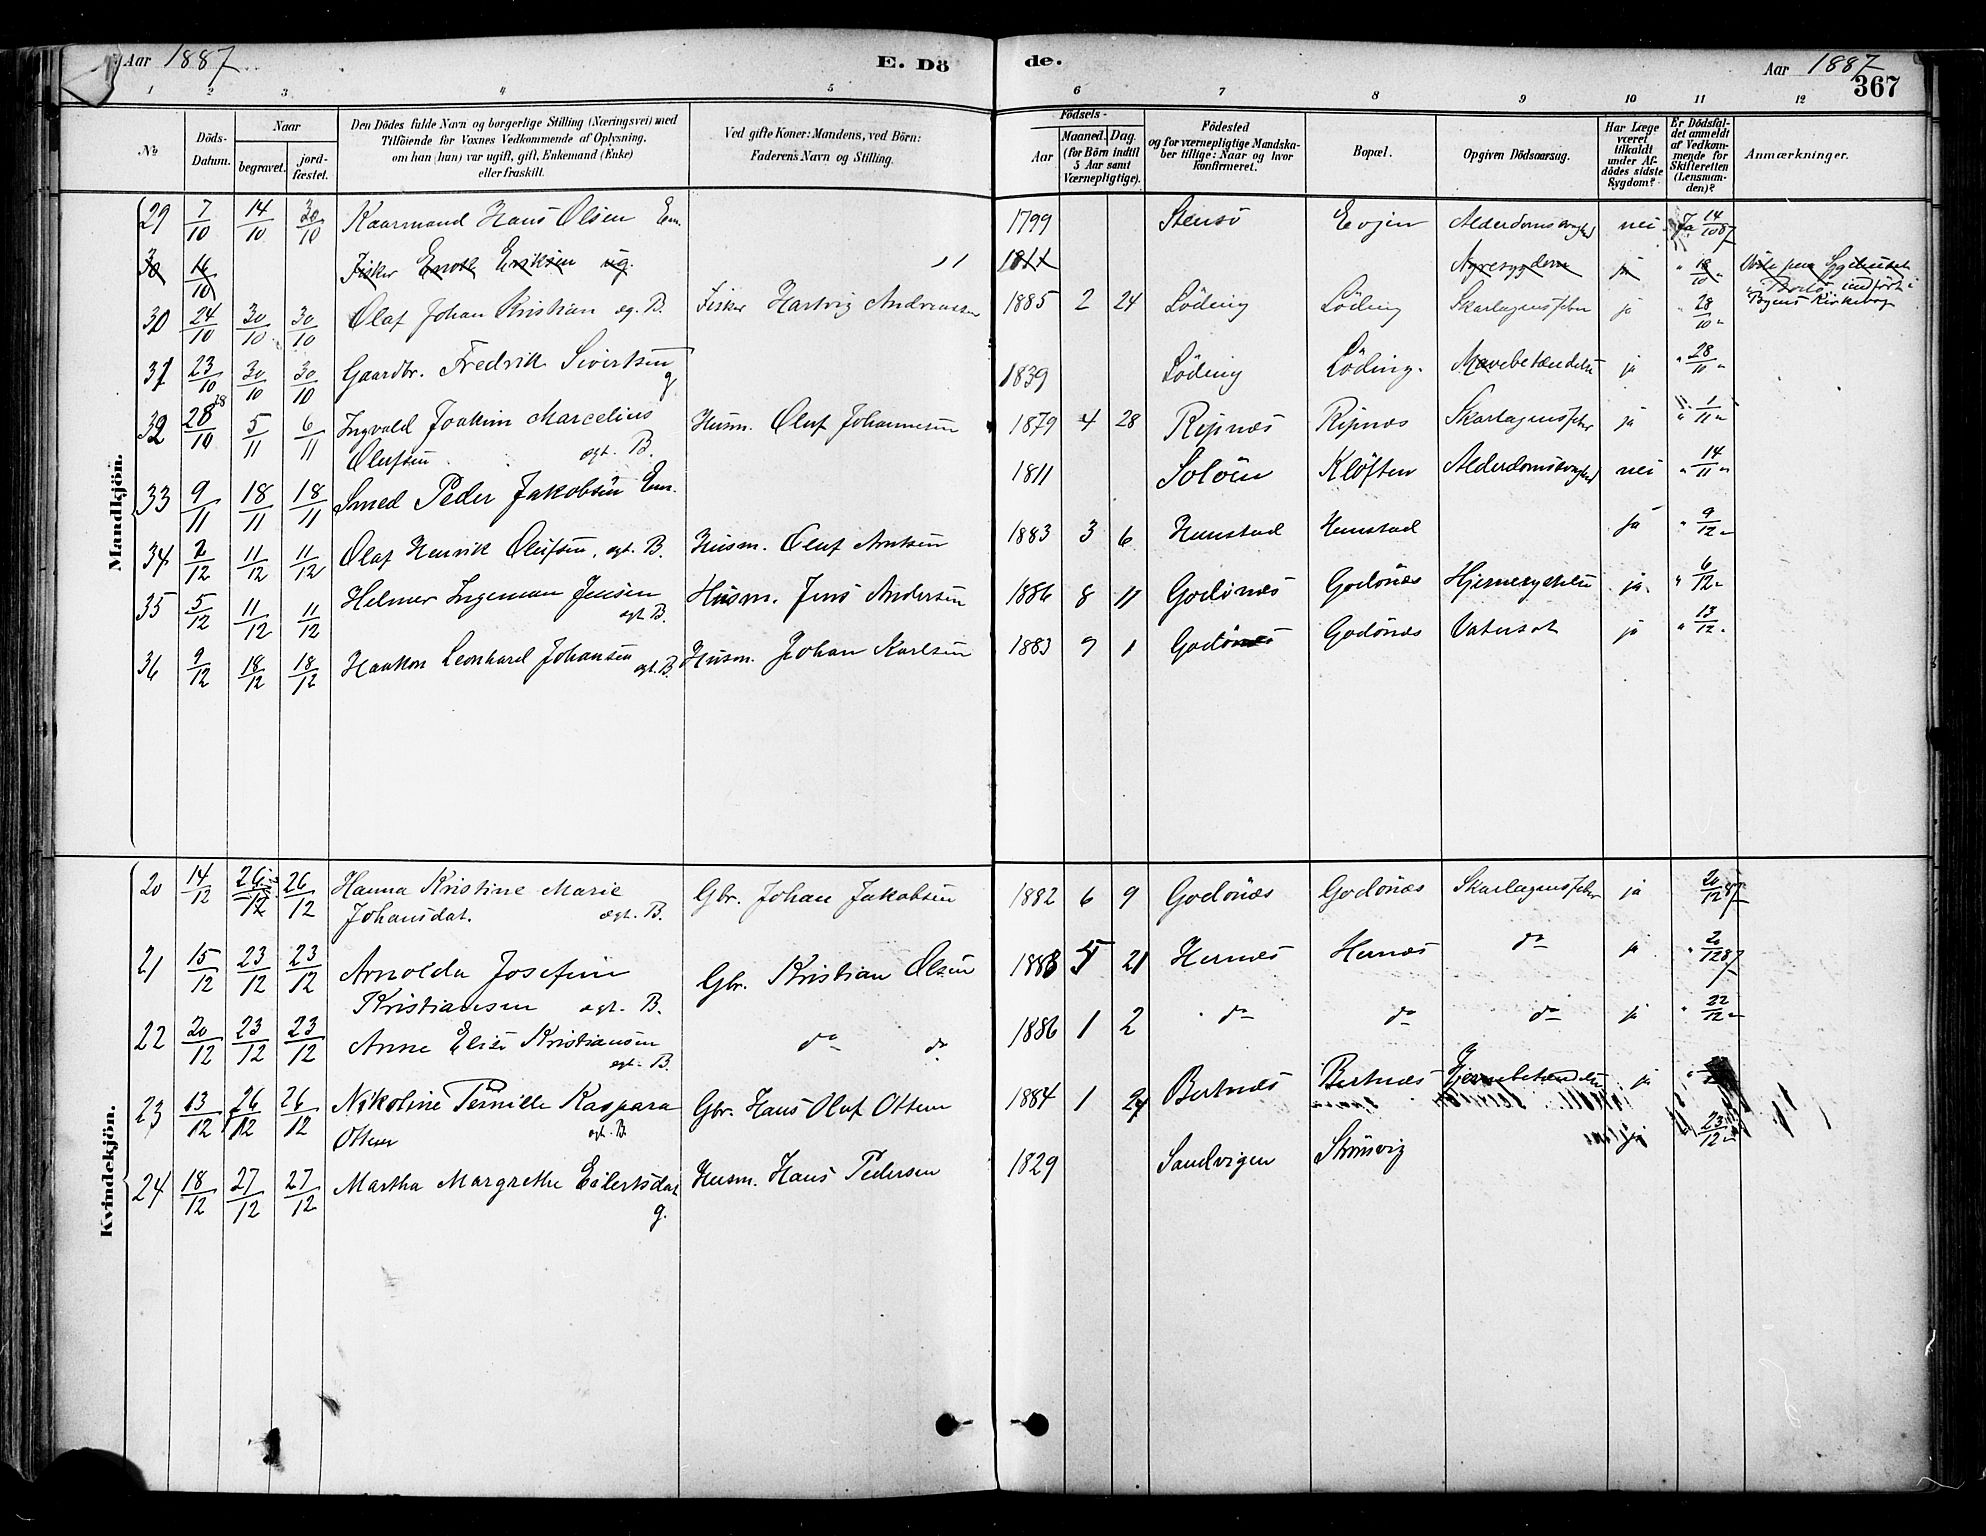 Aar 1887 E. Dö de. Aar 1887 367
1 2 3 4 5 6 7 8 9 10 11 12
No
Döds-Datum.
Naar
begravet.
jord-fæstet.
Den Dödes fulde Navn og borgerlige Stilling (Næringsvei) med
Tilföiende for Voxnes Vedkommende af Oplysning,
om han (hun) var ugift, gift, Enkemand (Enke)
eller fraskilt.
Ved gifte Koner: Mandens, ved Börn:
Faderens Navn og Stilling.
Födsels-
Aar
Maaned. Dag.
(for Börn indtil
5 Aar samt
Værnepligtige).
Födested
og for værnepligtige Mandska-
ber tillige: Naar og hvor
konfirmeret.
Bopæl.
Opgiven Dödsaarsag.
Har Læge
været
tilkaldt
under Af-
dödes sidste
Sygdom?
Er Dödsfal-
det anmeldt
af Vedkom-
mende for
Skifteretten
(Lensman-
den)?
Anmærkninger.
Mandkjön.
29 7/10 14/10 30/10 Kaarmand Hans Olsen Em. 1799 Stensö Evjen Alderdomssvaghed nei Ja 14/10 87
30 16/10 Fisker Enok Eriksen ug. 1811 Nyresygdom ja " 18/10 " Döde paa Sygehuset
i Bodö, indfört i
Byens Kirkebog
30 24/10 30/10 30/10 Olaf Johan Kristian æg. B. Fisker Hartvig Andreassen 1885 2 24 Löding Löding Skarlagensfeber ja " 28/10 "
31 23/10 30/10 30/10 Gaardbr. Fredrik Sivertsen g 1839 Löding Löding. Mavebetændelse ja " 28/11 "
32 28/10 5/11 6/11 Ingvald Joakim Marcelius Husm. Oluf Johannesen 1879 4 28 Ripnæs Ripnæs Skarlagensfeber ja " 1/11 "
Olufsen ægt. B.
33 9/11 18/11 18/11 Smed Peder Jakobsen Em. 1811 Soløen Kløften Alderdomssvaghed nei " 14/11 "
34 2/12 11/12 11/12 Olaf Henrik Olufsen, ægt. B. Husm. Oluf Arntsen 1883 3 6 Hunstad Hunstad ja " 9/12 "
35 5/12 11/12 11/12 Helmer Ingeman Jensen Husm. Jens Andersen 1886 8 11 Godönæs Godönæs Hjernerystelse ja. " 6/12 "
ægt. B.
36 9/12 18/12 18/12 Haakon Leonhard Johansen ægt. B. Husm. Johan Karlsen 1883 9 1 Godönæs Godönæs Vatersot ja " 13/12 "
Kvindekjön.
20 14/12 26/12 26/12 Hanna Kristine Marie Gbr. Johan Jakobsen 1882 6 9 Godönæs Godönæs Skarlagensfeber ja 20/12 87
Johansdat. ægt. B.
21 15/12 23/12 23/12 Arnolda Josefine Gbr. Kristian Olsen 1883 5 21 Hernæs Hernæs do ja " 20/12 87
Kristiansen ægt. B.
22 20/12 23/12 23/12 Anne Elise Kristiansen do do 1886 1 2 do do do ja " 22/12 "
ægt. B.
23 13/12 26/12 26/12 Nikoline Pernille Kaspara Gbr. Hans Oluf Ottesen 1884 1 24 Bertnæs Bertnæs Hjernebetændelse ja
Ottesen ægt. B.
24 18/12 27/12 27/12 Martha Margrethe Eilertsdat. Husm. Hans Pedersen 1829 Sandvigen Strömsvig 23/12 "
g.